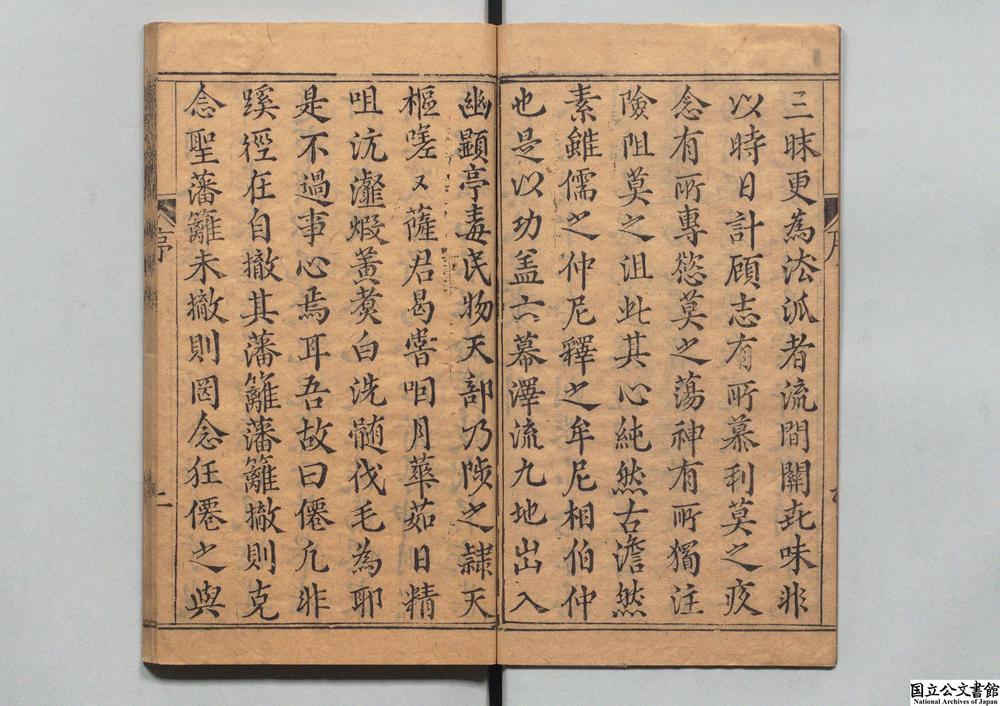 三昧更為泫泒者流間關㐂味非
以時日計顧志有所慕利莫之疚
念有所專慾莫之蕩神有所獨注
險阻莫之沮此其心純然古澹然
素雖儒之仲尼釋之牟尼相伯仲
也是以功盖六幕澤流九地出入
幽顯亭毒民物天部乃陟之隷天
樞嗟又薩君曷嘗咽月華茹日精
咀沆瀣煅黃煑白洗髄伐毛為耶
是不過事心焉耳吾故曰僊凢非
蹊徑在自撤其藩籬藩籬撤則克
念聖藩籬未撤則罔念狂僊之與
序
二
国立公文書館
National Archives of Japan